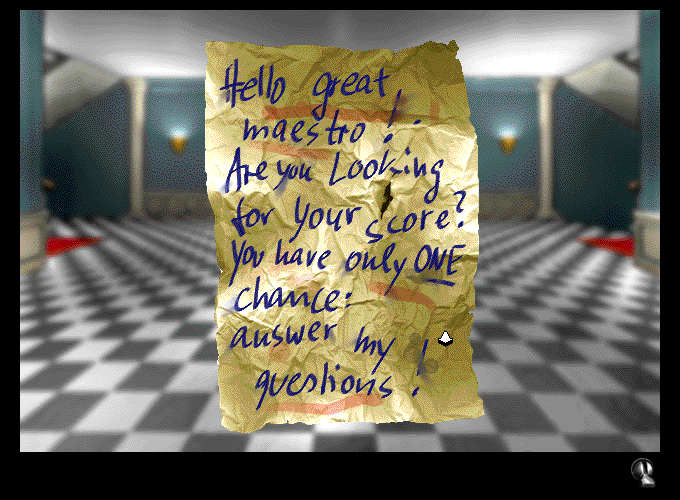 Hello great
maestro!
Are you Looking
for your score?
You have only ONE
chance:
answer my
questions!